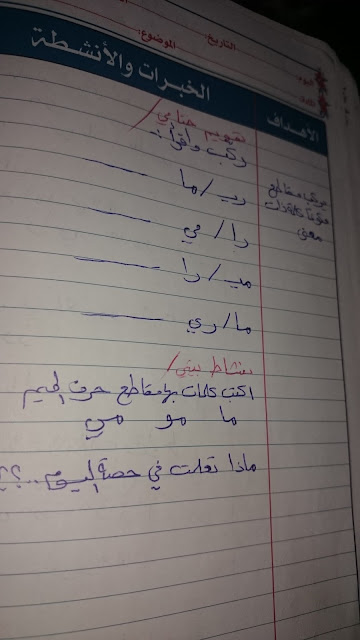 اليوم:
التاريخ:
الموضوع:
الأهداف
الخبرات والأنشطة
تقويم ختامي/
ركب واقرأ:
ريـ/ما
را/مي
ميـ/را
ما/ري
نشاط بيتي/
اكتب كلمات بها مقاطع حرف الميم
ما مو مي
ماذا تعلمت في حصة اليوم..؟؟
يركب مقاطع
معنى